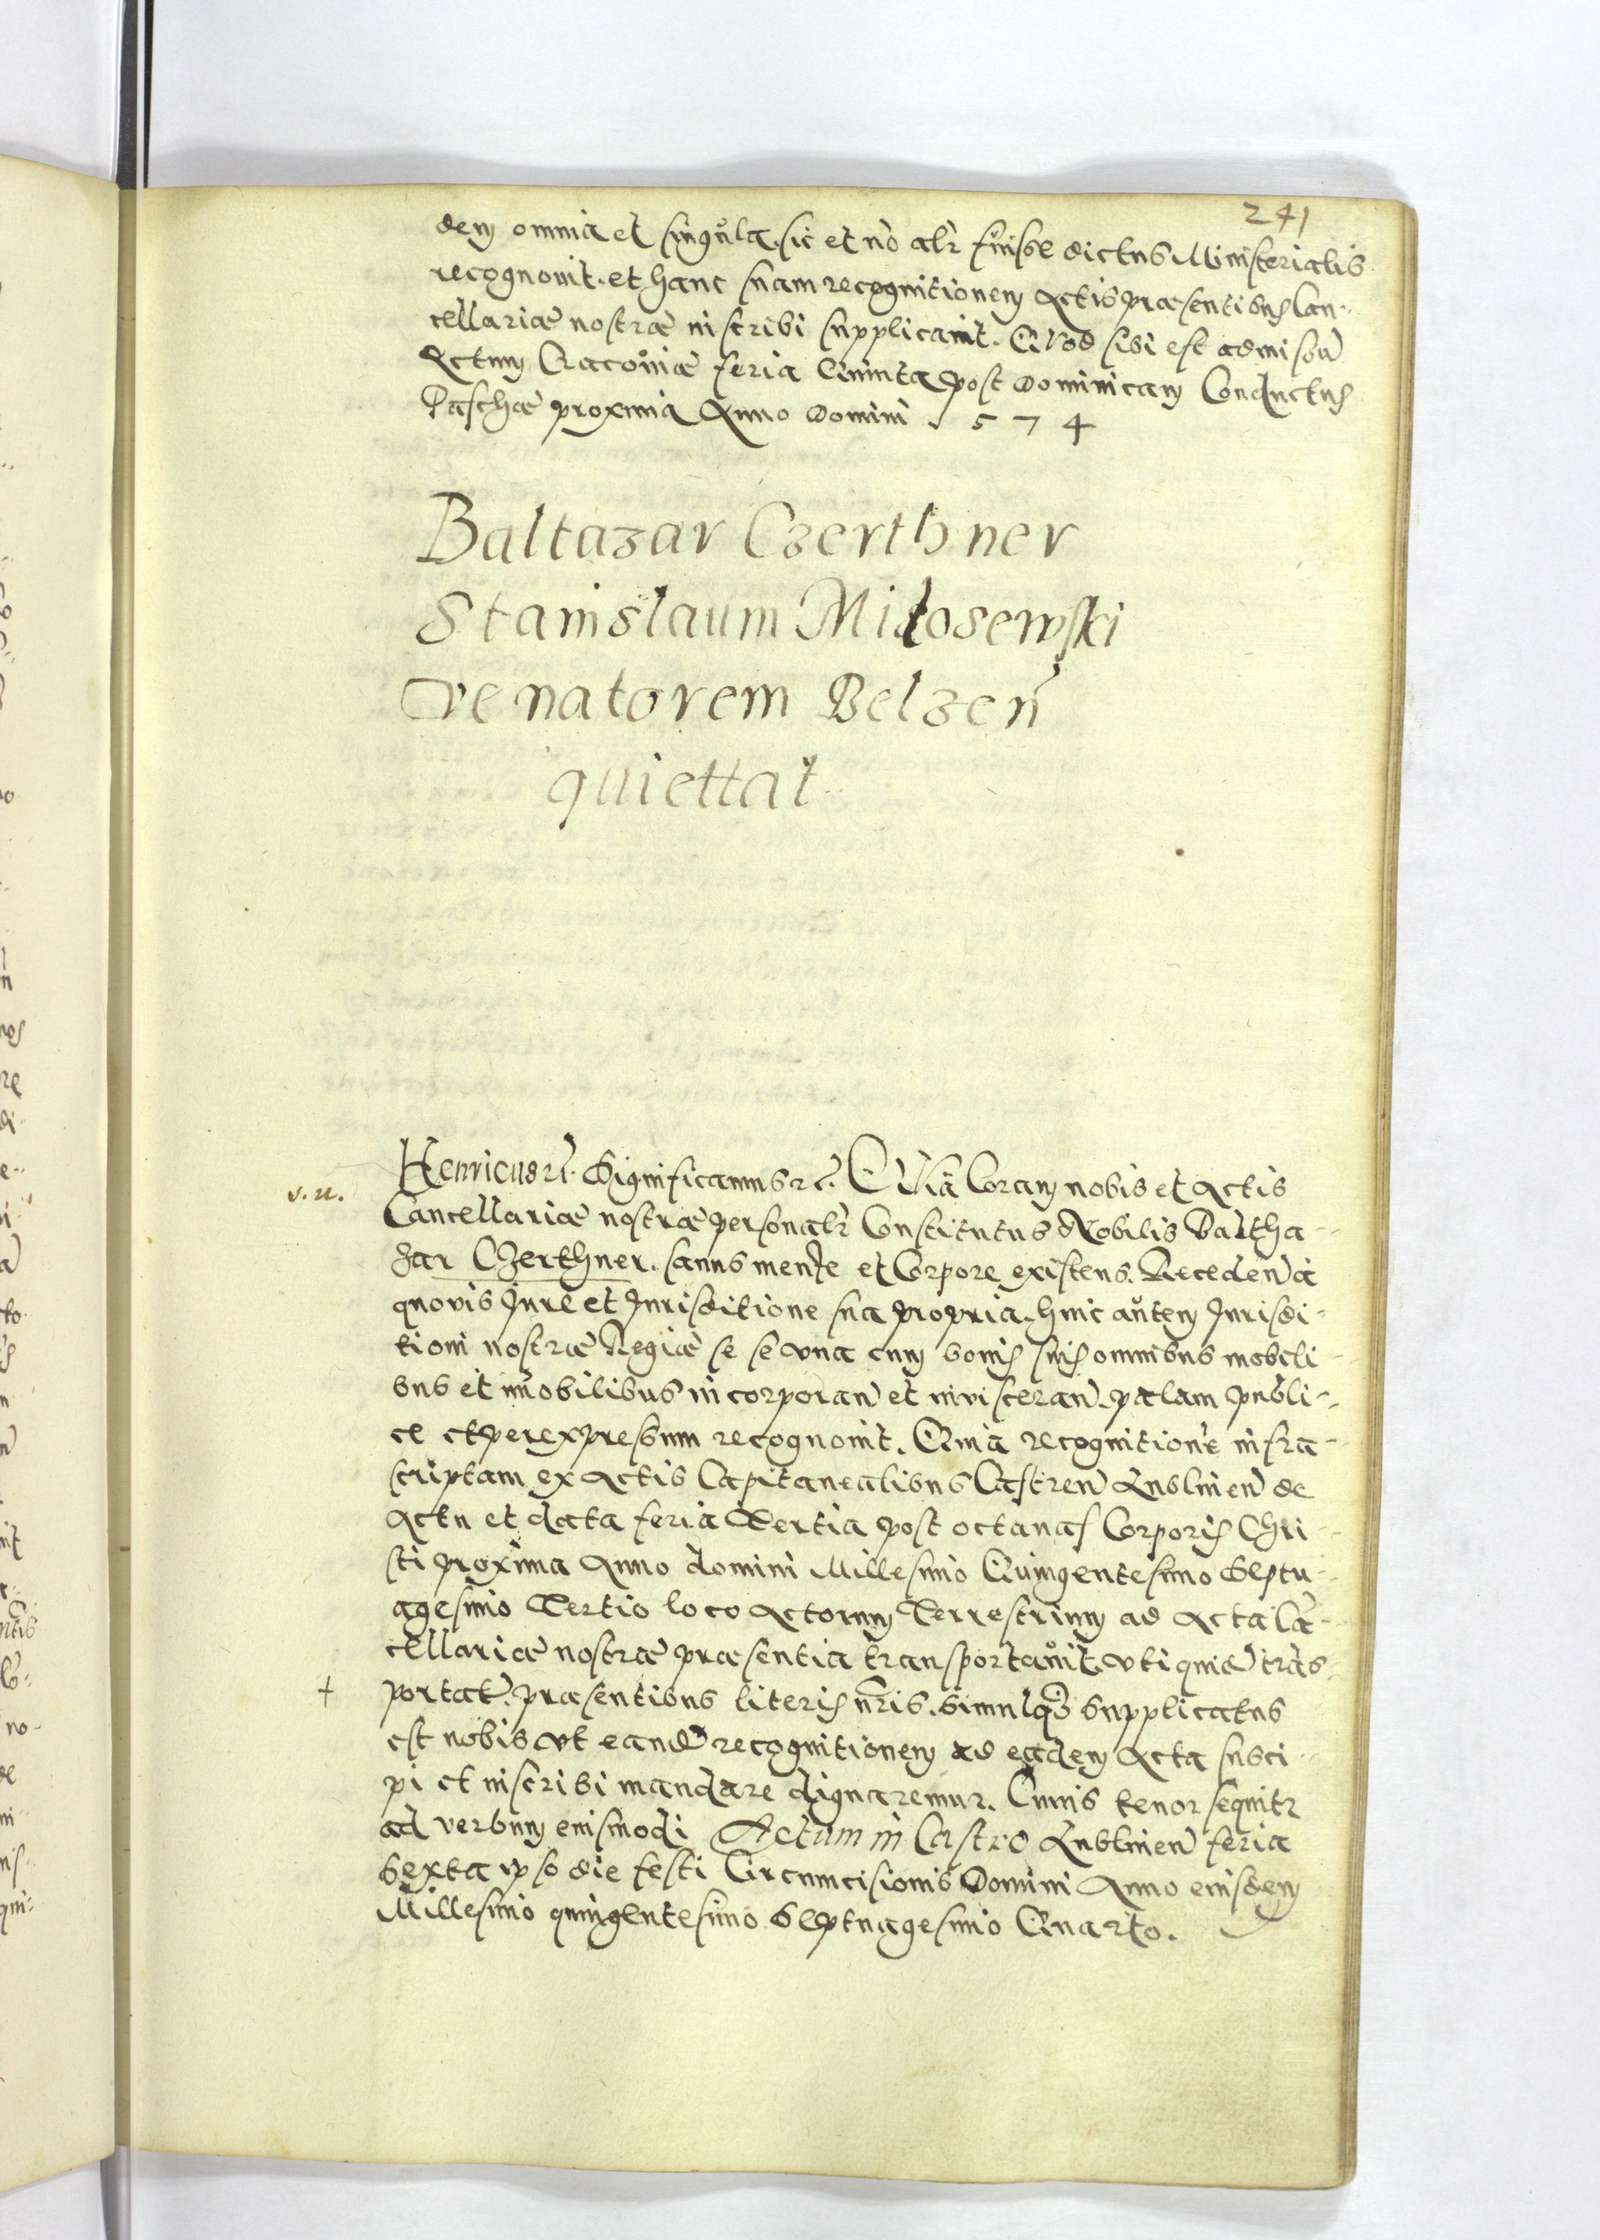 241
dem omnia et singula, sic et nō alr̃ fuisse dictus Ministerialis
recognouit. et hanc suam recognitionem Actis præsentibus Can-
cellariæ nostræ inscribi supplicauit. Quod sibi est admissū
Actum Cracouiæ feria Quinta post Dominicam Conductus
Paschæ proxima Anno Domini 1574
Baltazar Czerthner
Stanislaum Milosewski
venatorem Belzen̄
quiettat
Henricus rc̃. Significamus rc̃. Quia Coram nobis et Actis
s. u.
Cancellariæ nostræ personalr̃ Constitutus Nobilis Baltha-
zar Czerthner. sanus mente et Corpore existens. Recedeñ a
quouis Jure et Jurisditione sua propria. huic autem Jurisdi-
tioni nostræ Regiæ se se vna cum bonis suis omnibus mobili-
bus et im̄obilibus incorporañ et inuisceran̄. palam publi-
ce et per expressum recognouit. Quia recognitionē infra-
scriptam ex Actis Capitanealibus Castren̄ Lublinen̄ de
Actu et data feria Tertia post octauas Corporis Chri-
sti proxima Anno domini Millesimo Quingentesimo Septu-
agesimo Tertio loco Actorum Terrestrium ad Acta Cā-
cellariæ nostræ præsentia transportauit. vti quidē trās-
+
portat. præsentibus literis nr̃is. Simulq₃ supplicatus
est nobis vt eandē recognitionem ad eadem Acta susci-
pi et inscribi mandare dignaremur. Cuius tenor sequitr
ad verbum eiusmodi Actum in Castro Lublinen̄ feria
Sexta ipso die festi Circumcisionis Domini Anno eiusdem
Millesimo quingentesimo Septuagesimo Quarto.